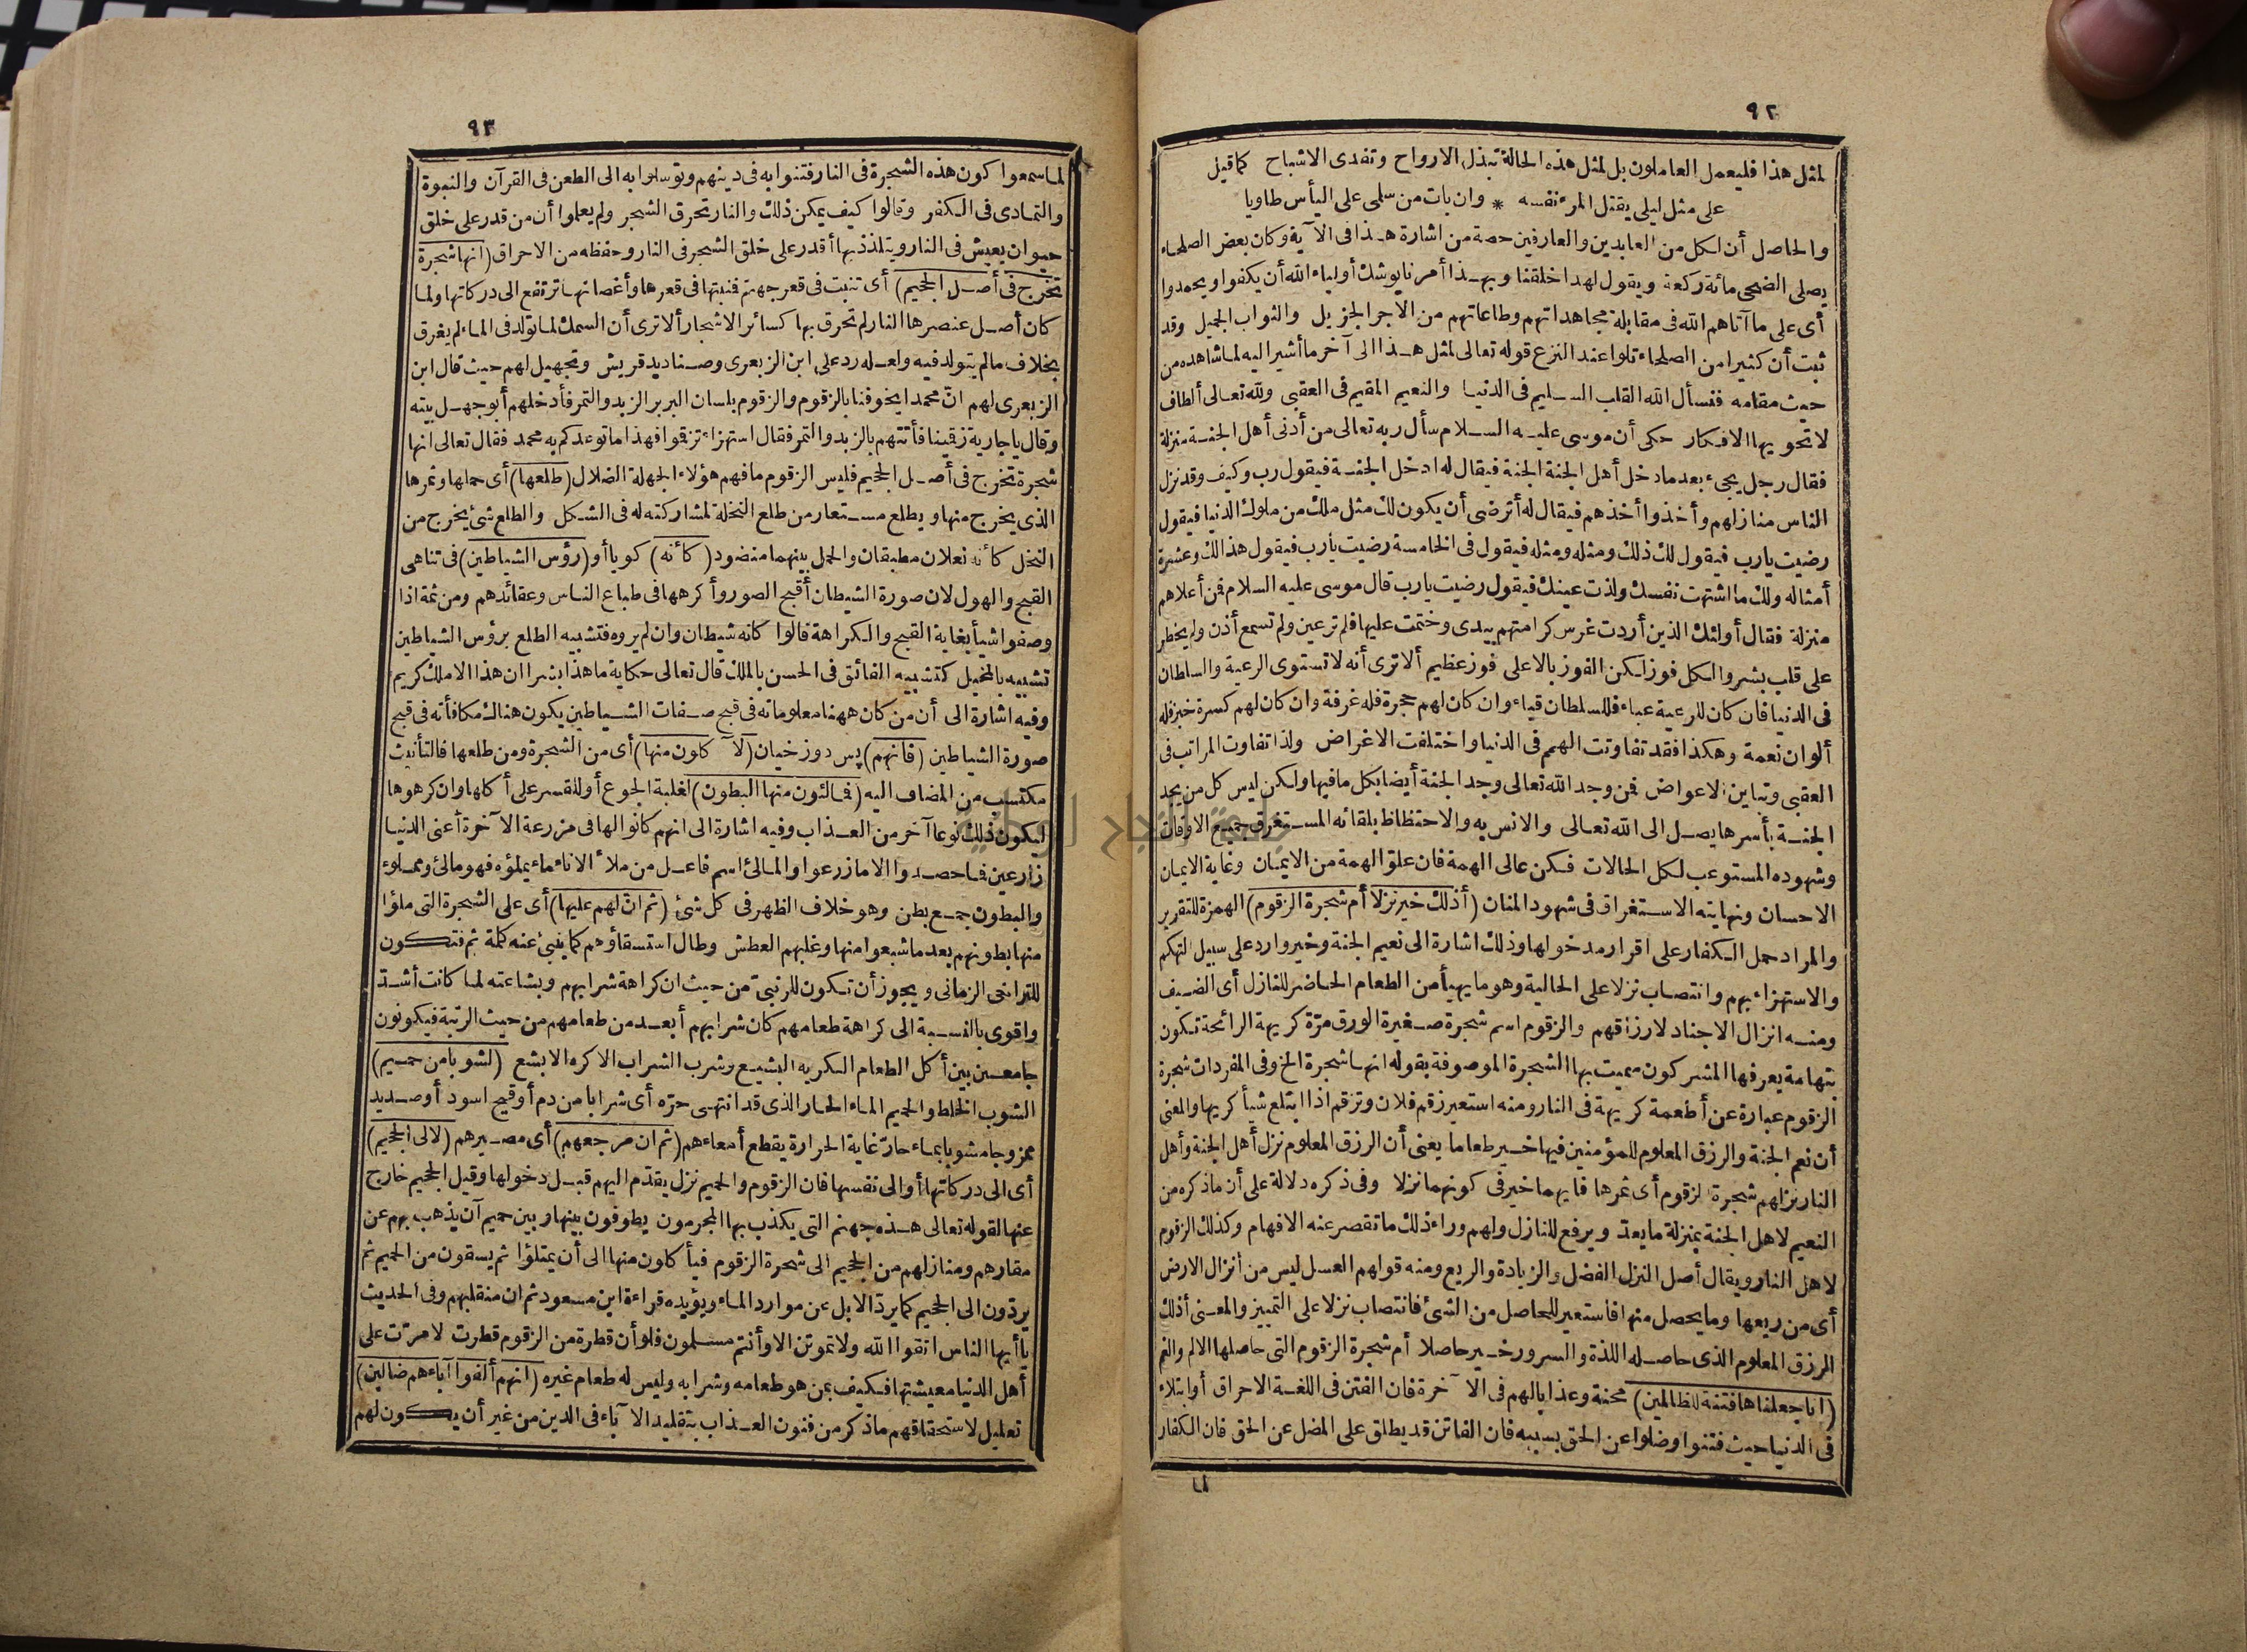 ٩٢
لمثل هذا فليعمل العاملون بل لمثل هذه الحالة تبذل الارواح وتفدى الاشباح كما قيل
على مثل ليلى يقتل المرء نفسه * وان بات من سلمى على اليأس طاويا
والحاصل أن لكل من العابدين والعارفين حصة من اشارة هذا فى الآية وكان بعض الصلحاء
يصلى الضحى مائة ركعة ويقول لهذا خلقنا وبهذا أمرنا يوشك أولياء الله أن يكفوا ويحمدوا
أى على ما آتاهم الله فى مقابلة مجاهداتهم وطاعاتهم من الاجر الجزيل والثواب الجميل وقد
ثبت أن كثيرا من الصلحاء تلوا عند النزع قوله تعالى لمثل هذا الى آخر ما أشير اليه لما شاهده من
حيث مقامه فنسأل الله القلب السليم فى الدنيا والنعيم المقيم فى العقبى ولله تعالى ألطاف
لا تحويها الافكار حكى أن موسى عليه السلام سأل ربه تعالى من أدنى أهل الجنة منزلة
فقال رجل يجىء بعد ما دخل أهل الجنة الجنة فيقال له ادخل الجنة فيقول رب وكيف وقد نزل
الناس منازلهم وأخذوا أخذهم فيقال له أترضى أن يكون لك مثل ملك من ملوك الدنيا فيقول
رضيت يارب فيقول لك ذلك ومثله ومثله فيقول فى الخامسة رضيت يارب فيقول هذا لك وعشرة
أمثاله ولك ما اشتهت نفسك ولذت عينك فيقول رضيت يارب قال موسى عليه السلام فمن أعلاهم
منزلة فقال أولئك الذين أردت غرس كرامتهم بيدى وختمت عليها فلم تر عين ولم تسمع أذن ولم يخطر
على قلب بشر والكل فوز لكن الفوز بالاعلى فوز عظيم ألا ترى أنه لا تستوى الرعية والسلطان
فى الدنيا فان كان للرعية عباء فللسلطان قباء وان كان لهم حجرة فله غرفة وان كان لهم كسرة خبز فله
ألوان نعمة وهكذا فقد تفاوتت الهمم فى الدنيا واختلفت الاغراض ولذا تفاوت المراتب فى
العقبى وتباين الاعواض فمن وجد الله تعالى وجد الجنة أيضا بكل ما فيها ولكن ليس كل من يجد
الجنة بأسرها يصل الى الله تعالى والانس به والاحتظاظ بلقائه المستغرق جميع الاوقات
وشهوده المستوعب لكل الحالات فكن عالى الهمة فان علو الهمة من الايمان وغاية الايمان
الاحسان ونهايته الاستغراق فى شهود المنان (أذلك خير نزلا أم شجرة الزقوم) الهمزة للتقرير
والمراد حمل الكفار على اقرار مدخولها وذلك اشارة الى نعيم الجنة وخير وارد على سبيل التهكم
والاستهزاء بهم وانتصاب نزلا على الحالية وهو ما يهيأ من الطعام الحاضر للنازل أى الضيف
ومنه انزال الاجناد لارزاقهم والزقوم اسم شجرة صغيرة الورق مرّة كريهة الرائحة تكون
بتهامة يعرفها المشركون سميت بها الشجرة الموصوفة بقوله انها شجرة الخ وفى المفردات شجرة
الزقوم عبارة عن أطعمة كريهة فى النار ومنه استعير زقم فلان وتزقم اذا ابتلع شيأ كريها والمعنى
أن نعم الجنة والرزق المعلوم للمؤمنين فيها خير طعاما يعنى أن الرزق المعلوم نزل أهل الجنة وأهل
النار نزلهم شجرة الزقوم أى ثمرها فايهما خير فى كونهما نزلا وفى ذكره دلالة على أن ما ذكره من
النعيم لاهل الجنة بمنزلة ما يعدّ ويرفع للنازل ولهم وراء ذلك ما تقصر عنه الافهام وكذلك الزقوم
لاهل النار ويقال أصل النزل الفضل والزيادة والريع ومنه قولهم العسل ليس من أنزال الارض
أى من ريعها وما يحصل منها فاستعير للحاصل من الشئ فانتصاب نزلا على التمييز والمعنى أذلك
الرزق المعلوم الذى حاصله اللذة والسرور خير حاصلا أم شجرة الزقوم التى حاصلها الالم والغم
(انا جعلناها فتنة للظالمين) محنة وعذابا لهم فى الآخرة فان الفتن فى اللغة الاحراق أو ابتلاء
فى الدنيا حيث فتنوا وضلوا عن الحق بسببه فان الفاتن قد يطلق على المضل عن الحق فان الكفار
لما
٩٣
لما سمعوا كون هذه الشجرة فى النار فتنوا به فى دينهم وتوسلوا به الى الطعن فى القرآن والنبوة
والتمادى فى الكفر وقالوا كيف يمكن ذلك والنار تحرق الشجر ولم يعلموا أن من قدر على خلق
حيوان يعيش فى النار ويتلذذ بها أقدر على خلق الشجر فى النار وحفظه من الاحراق (انها شجرة
تخرج فى أصل الجحيم) أى تنبت فى قعر جهنم فنبتها فى قعرها وأغصانها ترتفع الى دركاتها ولما
كان أصل عنصرها النار لم تحرق بها كسائر الاشجار ألا ترى أن السمك لما تولد فى الماء لم يغرق
بخلاف ما لم يتولد فيه ولعله رد على ابن الزبعرى وصناديد قريش وتجهيل لهم حيث قال ابن
الزبعرى لهم انّ محمدا يخوفنا بالزقوم والزقوم بلسان البربر الزبد والتمر فأدخلهم أبو جهل بيته
وقال ياجارية زقمينا فأتتهم بالزبد والتمر فقال استهزاء تزقوا فهذا ما توعدكم به محمد فقال تعالى انها
شجرة تخرج فى أصل الجحيم فليس الزقوم ما فهم هؤلاء الجهلة الضلال (طلعها) أى حملها وثمرها
الذى يخرج منها ويطلع مستعار من طلع النخلة لمشاركته له فى الشكل والطلع شئ يخرج من
النخل كأنه نعلان مطبقان والحمل بينهما منضود (كأنه) كويا أو (رؤس الشياطين) فى تناهى
القبح والهول لان صورة الشيطان أقبح الصور وأكرهها فى طباع الناس وعقائدهم ومن ثمة اذا
وصفوا شيأ بغاية القبح والكراهة قالوا كانه شيطان وان لم يروه فتشبيه الطلع برؤس الشياطين
تشبيه بالمخيل كتشبيه الفائق فى الحسن بالملك قال تعالى حكاية ما هذا بشرا ان هذا الا ملك كريم
وفيه اشارة الى أن من كان ههنا معلوماته فى قبح صفات الشياطين يكون هنالك مكافأته فى قبح
صورة الشياطين (فانهم) پس دوزخيان (لآكلون منها) أى من الشجرة ومن طلعها فالتأنيث
مكتسب من المضاف اليه (فمالئون منها البطون) لغلبة الجوع أو للقسر على أكلها وان كرهوها
ليكون ذلك نوعا آخر من العذاب وفيه اشارة الى انهم كانوا لها فى مزرعة الآخرة أعنى الدنيا
زارعين فما حصدوا الا ما زرعوا والمالئ اسم فاعل من ملأ الاناء ماء يملؤه فهو مالئ ومملوء
والبطون جمع بطن وهو خلاف الظهر فى كل شئ (ثم انّ لهم عليها) أى على الشجرة التى ملؤا
منها بطونهم بعد ما شبعوا منها وغلبهم العطش وطال استسقاؤهم كما ينبئ عنه كلمة ثم فتكون
للتراخى الزمانى ويجوز أن تكون للرتبىّ من حيث ان كراهة شرابهم وبشاعته لما كانت أشدّ
واقوى بالنسبة الى كراهة طعامهم كان شرابهم أبعد من طعامهم من حيث الرتبة فيكونون
جامعين بين أكل الطعام الكريه البشيع وشرب الشراب الاكره الابشع (لشوبا من حميم)
الشوب الخلط والحميم الماء الحار الذى قد انتهى حرّه أى شرابا من دم أو قيح اسود أو صديد
ممزوجا مشوبا بماء حارّ غاية الحرارة يقطع أمعاءهم (ثم ان مرجعهم) أى مصيرهم (لالى الجحيم)
أى الى دركاتها أو الى نفسها فان الزقوم والحميم نزل يقدّم اليهم قبل دخولها وقيل الجحيم خارج
عنها لقوله تعالى هذه جهنم التى يكذب بها المجرمون يطوفون بينها وبين حميم آن يذهب بهم عن
مقارهم ومنازلهم من الجحيم الى شجرة الزقوم فيأكلون منها الى أن يمتلؤا ثم يسقون من الحميم ثم
يردّون الى الجحيم كما يردّ الابل عن موارد الماء ويؤيده قراءة ابن مسعود ثم ان منقلبهم وفى الحديث
ياأيها الناس اتقوا الله ولا تموتن الا وأنتم مسلمون فلو أن قطرة من الزقوم قطرت لامرّت على
أهل الدنيا معيشتها فكيف بمن هو طعامه وشرابه وليس له طعام غيره (انهم ألفوا آباءهم ضالين)
تعليل لاستحقاقهم ما ذكر من فنون العذاب بتقليد الآباء فى الدين من غير أن يكون لهم